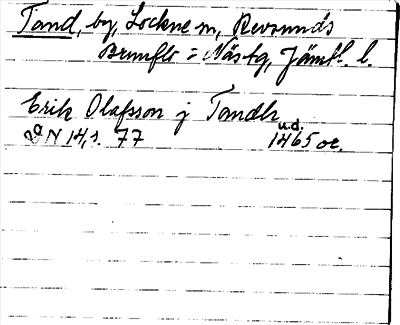 Tand, by, Lockne sn, Revsunds
Brunflo = Näs tg, Jämtl. l.
Erik Olafsson j Tandh
DN 14, s. 77 u.d. 1465 or.